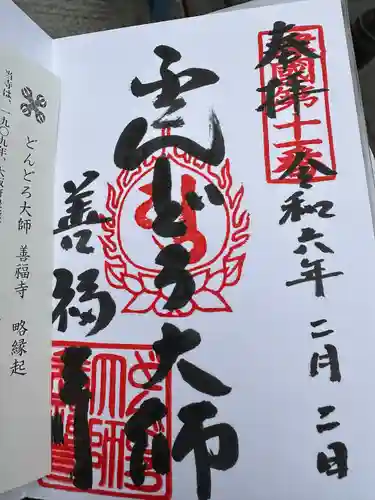 奉拝
國第十一番
令和六年二月二日
どんどろ大師
善福寺
とんどろ大師 善福寺 略縁起
当寺は、一九〇九年、大阪府